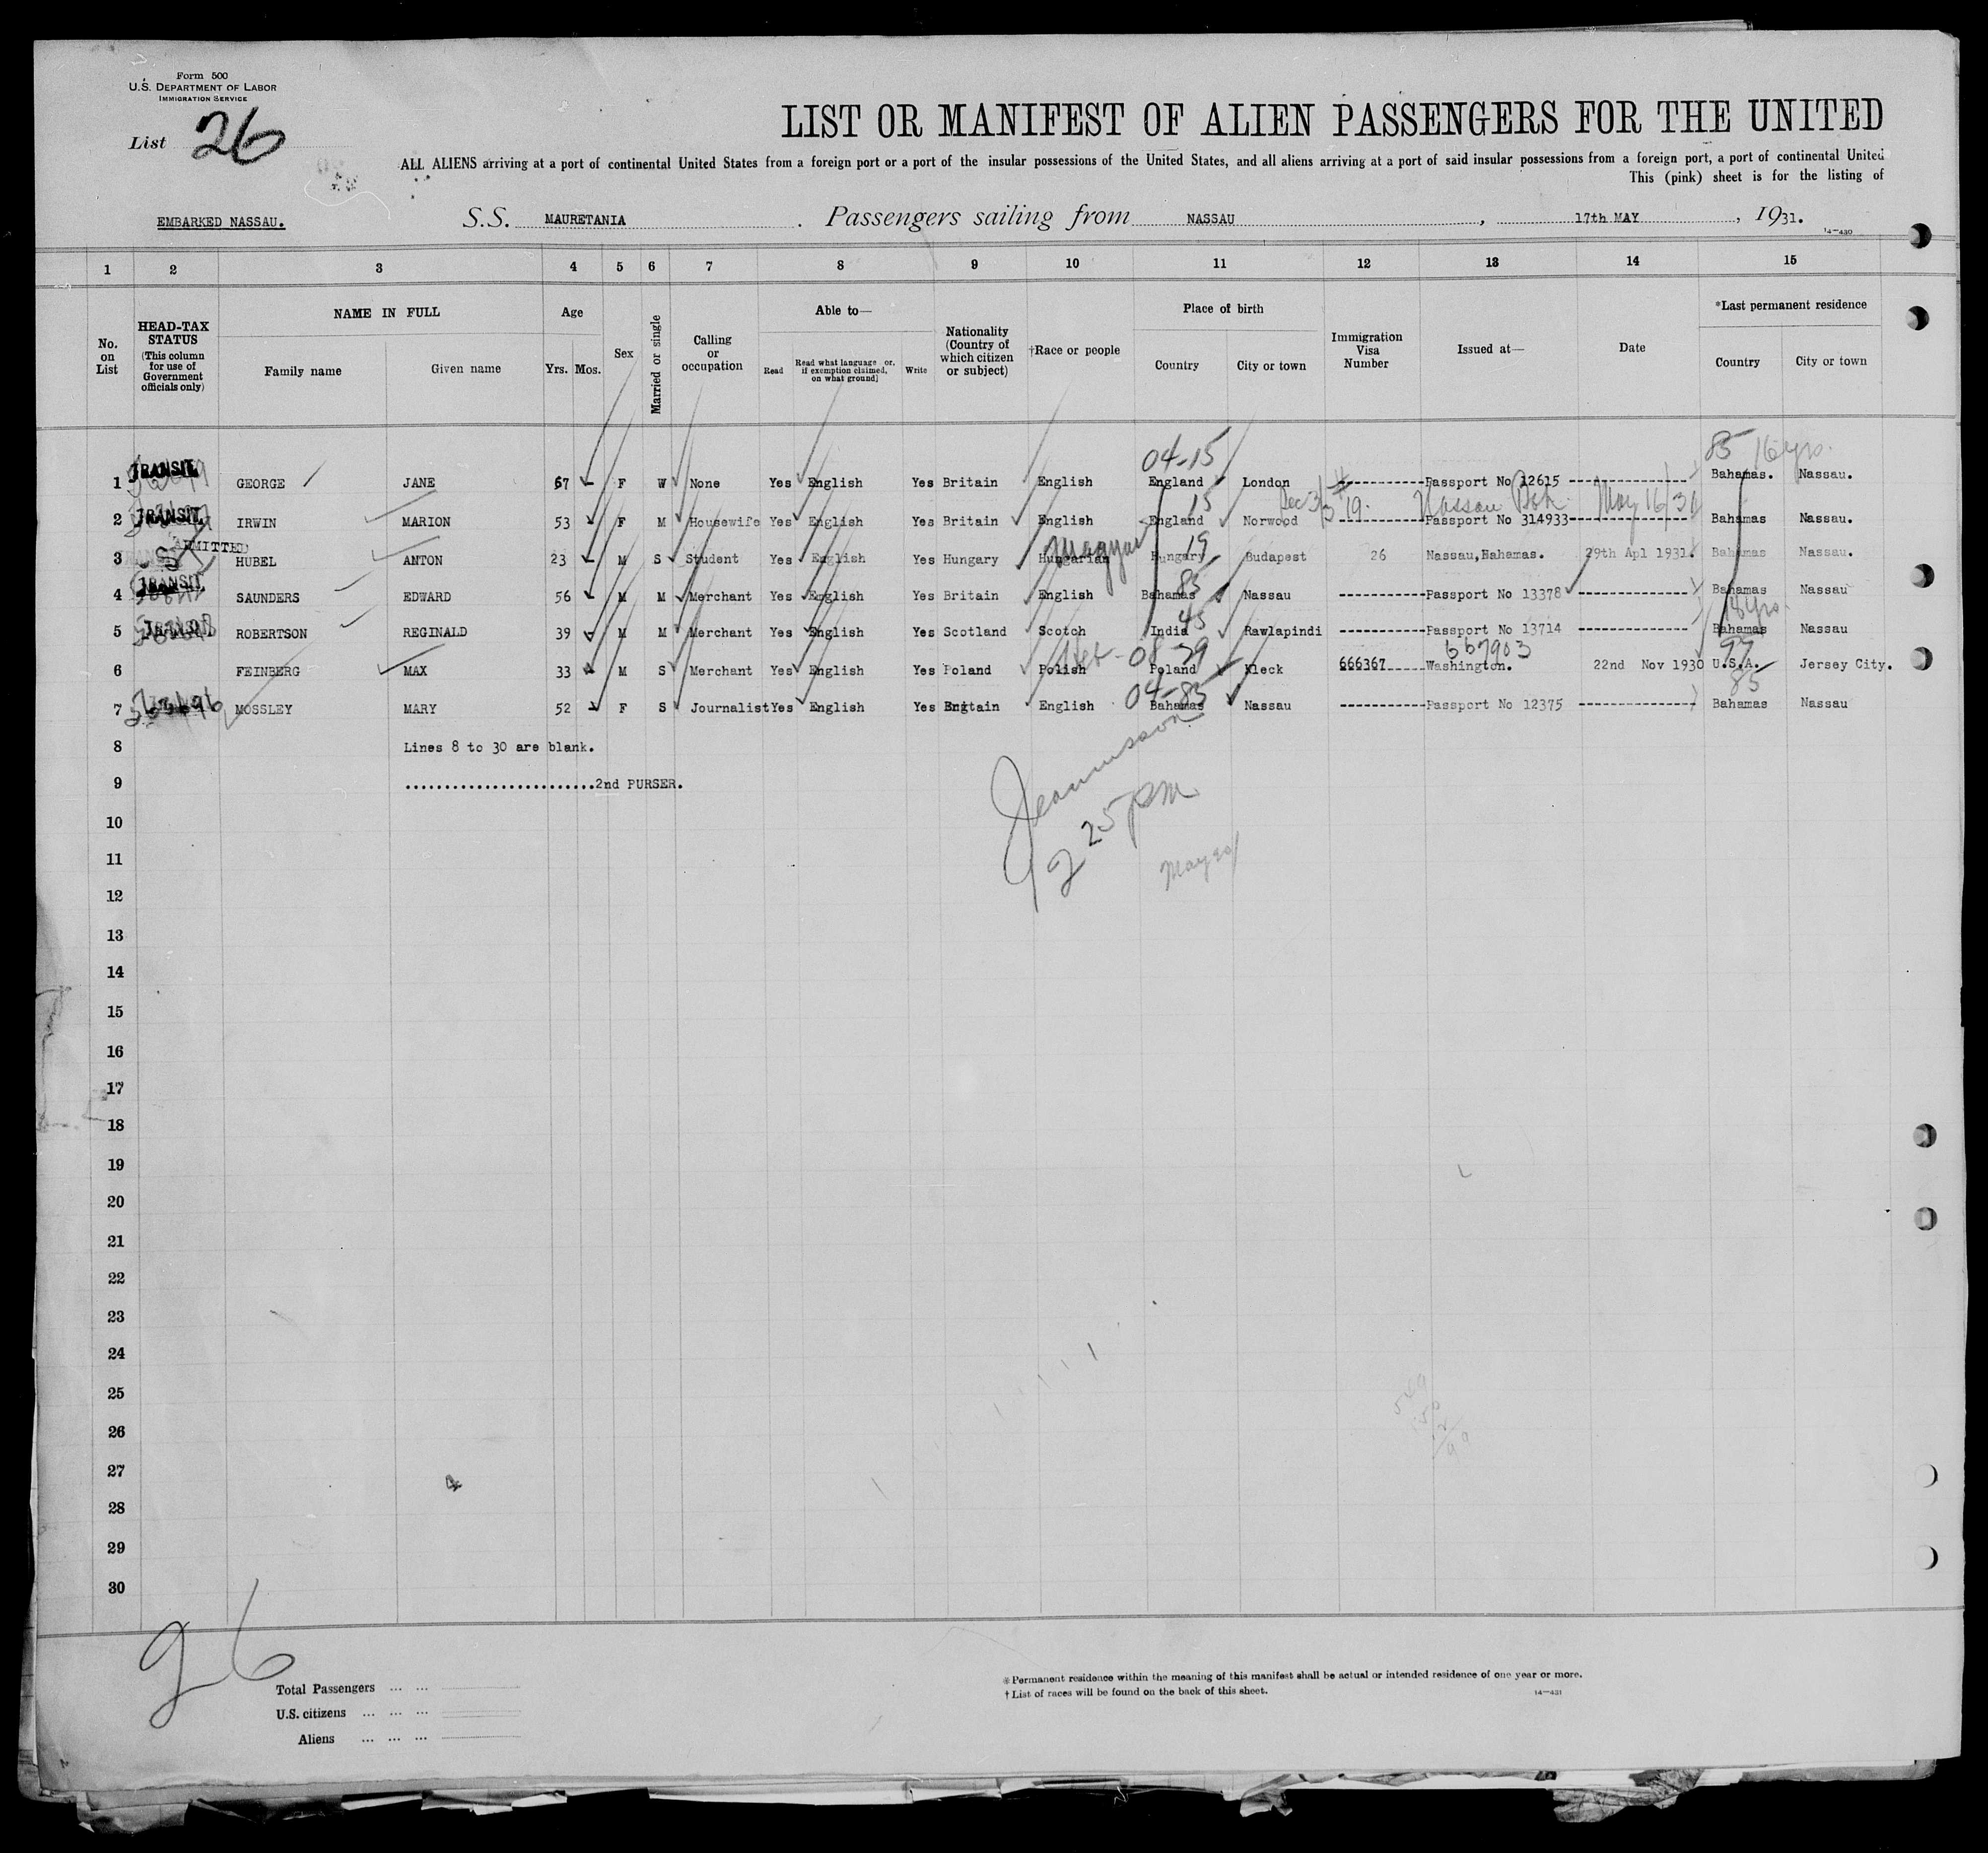 Form 500
U.S. DEPARTMENT OF LABOR
IMMIGRATION SERVICE
List 26
LIST OR MANIFEST OF ALIEN PASSENGERS FOR THE UNITED
ALL ALIENS arriving at a port of continental United States from a foreign port or a port of the insular possessions of the United States, and all aliens arriving at a port of said insular possessions from a foreign port, a port of continental United
This (pink) sheet is for the listing of
EMBARKED NASSAU. S.S. MAURETANIA. Passengers sailing from NASSAU, 17th MAY, 1931.
14-430
1 2 3 4 5 6 7 8 9 10 11 12 13 14 15
No. on List
HEAD-TAX STATUS (This column for use of Government officials only)
NAME IN FULL
Family name Given name
Age
Yrs. Mos.
Sex
Married or single
Calling or occupation
Able to—
Read Read what language or, if exemption claimed, on what ground] Write
Nationality (Country of which citizen or subject)
†Race or people
Place of birth
Country City or town
Immigration Visa Number
Issued at—
Date
*Last permanent residence
Country City or town
04-15 85 16 yrs.
1 TRANSIT GEORGE JANE 67 F W None Yes English Yes Britain English England London Passport No 12615 Bahamas. Nassau.
15 Dec 3/19. Nassau May 16/31
2 TRANSIT IRWIN MARION 53 F M Housewife Yes English Yes Britain English England Norwood Passport No 314933 Bahamas Nassau.
ADMITTED Magyar 19
3 HUBEL ANTON 23 M S Student Yes English Yes Hungary Hungarian Hungary Budapest 26 Nassau,Bahamas. 29th Apl 1931. Bahamas Nassau.
85
4 TRANSIT SAUNDERS EDWARD 56 M M Merchant Yes English Yes Britain English Bahamas Nassau Passport No 13378 Bahamas Nassau
45 yrs.
5 TRANSIT ROBERTSON REGINALD 39 M M Merchant Yes English Yes Scotland Scotch India Rawlapindi Passport No 13714 Bahamas Nassau
Heb- 08-39 667903 99
6 FEINBERG MAX 33 M S Merchant Yes English Yes Poland Polish Poland Kleck 666367 Washington. 22nd Nov 1930 U.S.A. Jersey City.
04-85 85
7 MOSSLEY MARY 52 F S Journalist Yes English Yes Britain English Bahamas Nassau Passport No 12375 Bahamas Nassau
8 Lines 8 to 30 are blank.
9 ........................2nd PURSER.
2 25 PM
May 20
10
11
12
13
14
15
16
17
18
19
20
21
22
23
24
25
26
27
28
29
30
26
Total Passengers ... ...
U.S. citizens ... ... ...
Aliens ... ... ...
* Permanent residence within the meaning of this manifest shall be actual or intended residence of one year or more.
† List of races will be found on the back of this sheet.
14-431